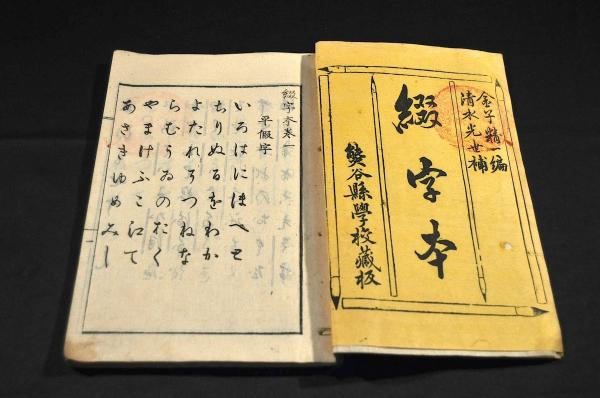 金子精一編
清水光世補
綴字本
熊谷縣學校藏板
綴字本卷一
平假字
いろはにほへと
ちりぬるをわか
よたれそつねな
らむうゐのおく
やまけふこ江て
あさきゆめみし